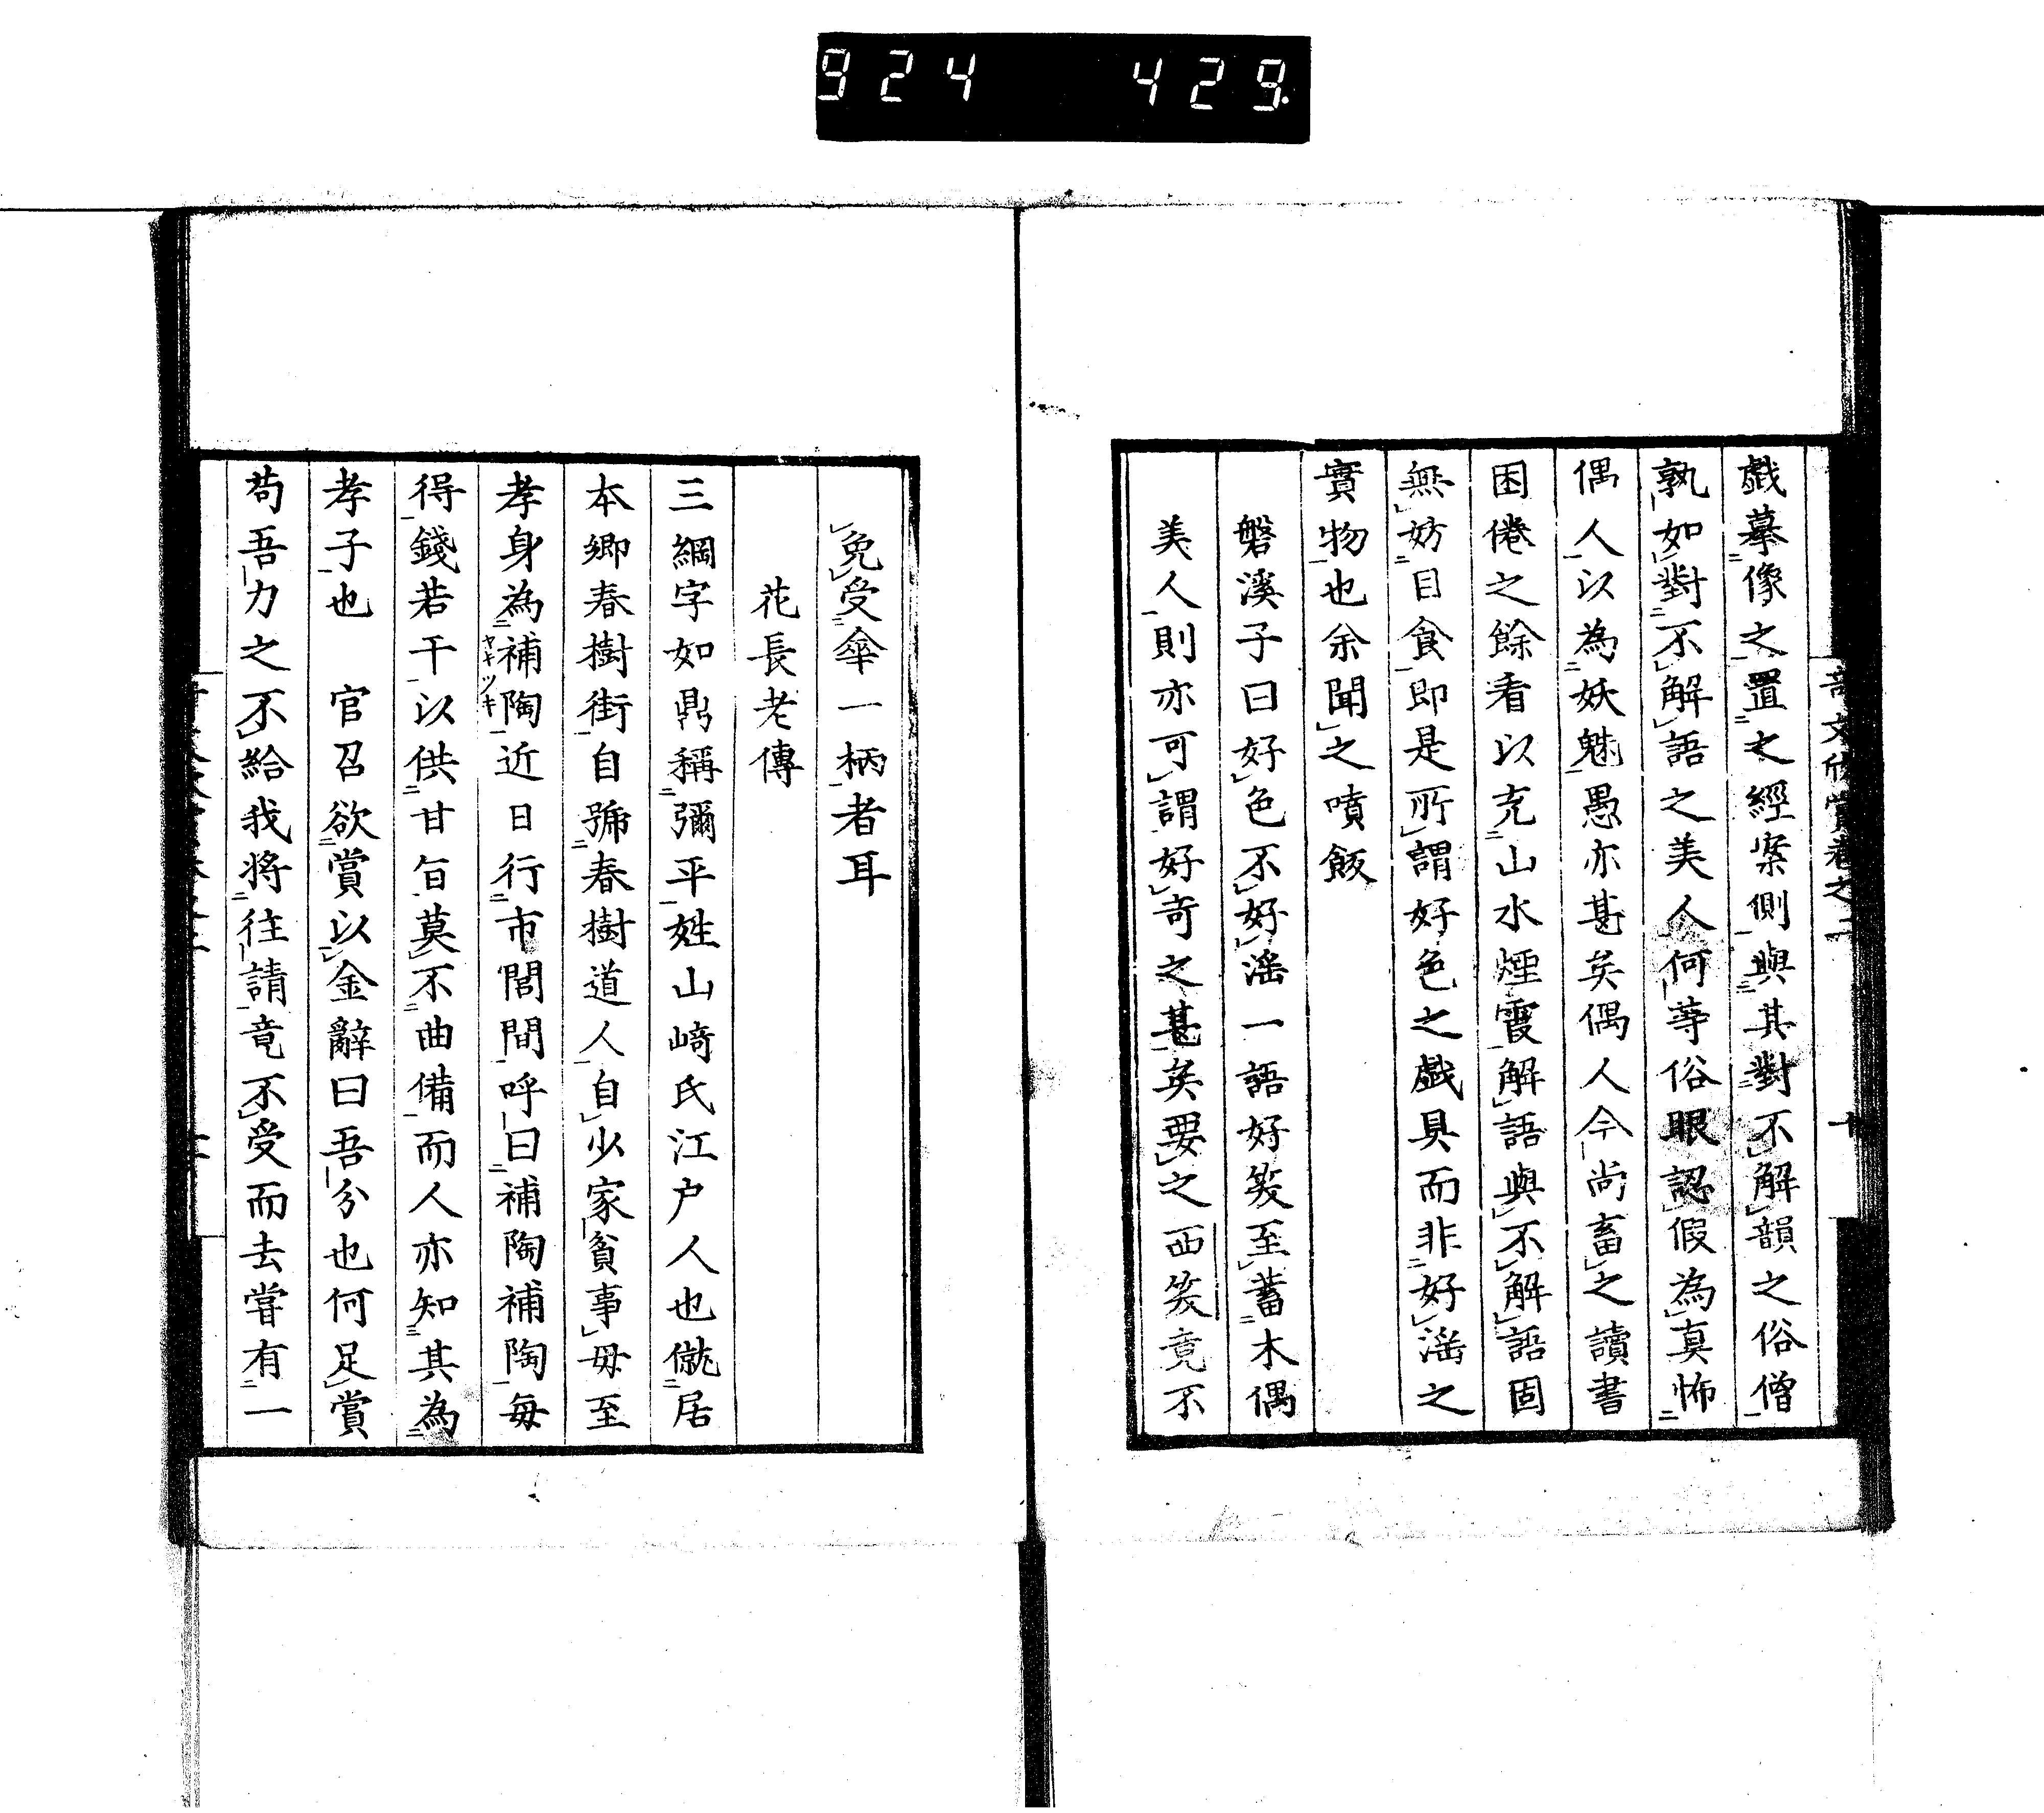 924 429
戲摹像之置之經案側與其對不解韻之俗僧
孰如對不解語之美人何等俗眼認假為真怖
偶人以為妖魅愚亦甚矣偶人今尚畜之讀書
困倦之餘看以充山水煙霞解語與不解語固
無妨目食即是所謂好色之戲具而非好滛之
實物也余聞之噴飯
磐溪子曰好色不好滛一語好笑至蓄木偶
美人則亦可謂好奇之甚矣要之西笑竟不
免受傘一柄者耳
花長老傳
三綱字如鼎稱彌平姓山崎氏江戶人也僦居
本鄉春樹街自號春樹道人自少家貧事母至
孝身為補陶近日行市閭間呼曰補陶補陶每
ヤキツキ
得錢若干以供甘旨莫不曲備而人亦知其為
孝子也 官召欲賞以金辭曰吾分也何足賞
苟吾力之不給我將往請竟不受而去嘗有一